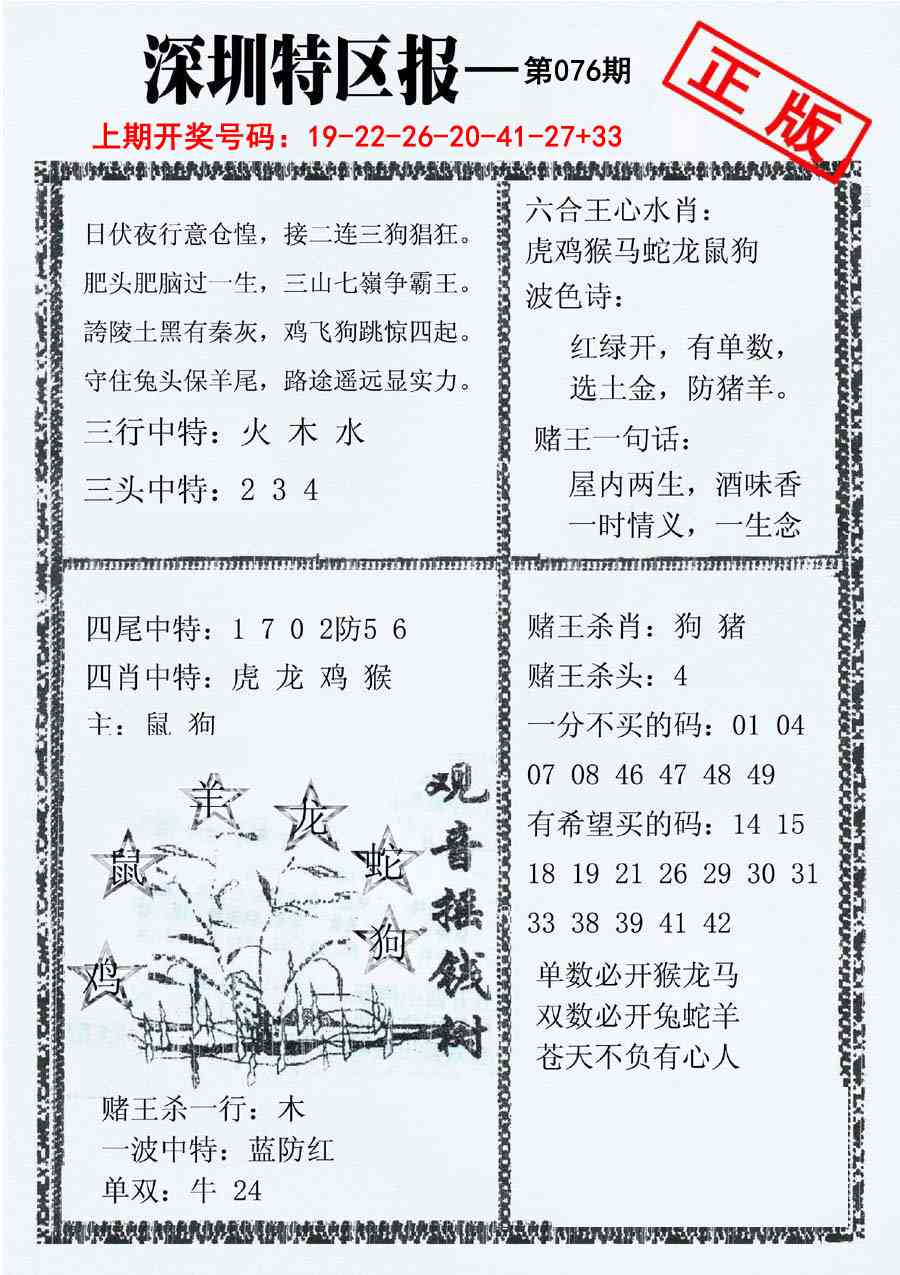 深圳特区报—第076期
正版
上期开奖号码：19-22-26-20-41-27+33
日伏夜行意仓惶，接二连三狗猖狂。
肥头肥脑过一生，三山七嶺争霸王。
誇陵土黑有秦灰，鸡飞狗跳惊四起。
守住兔头保羊尾，路途遥远显实力。
三行中特：火 木 水
三头中特：2 3 4
六合王心水肖：
虎鸡猴马蛇龙鼠狗
波色诗：
红绿开，有单数，
选土金，防猪羊。
赌王一句话：
屋内两生，酒味香
一时情义，一生念
四尾中特：1 7 0 2防5 6
四肖中特：虎 龙 鸡 猴
主：鼠 狗
羊
龙
鼠
蛇
狗
鸡
观音摇钱树
赌王杀一行：木
一波中特：蓝防红
单双：牛 24
赌王杀肖：狗 猪
赌王杀头：4
一分不买的码：01 04
07 08 46 47 48 49
有希望买的码：14 15
18 19 21 26 29 30 31
33 38 39 41 42
单数必开猴龙马
双数必开兔蛇羊
苍天不负有心人